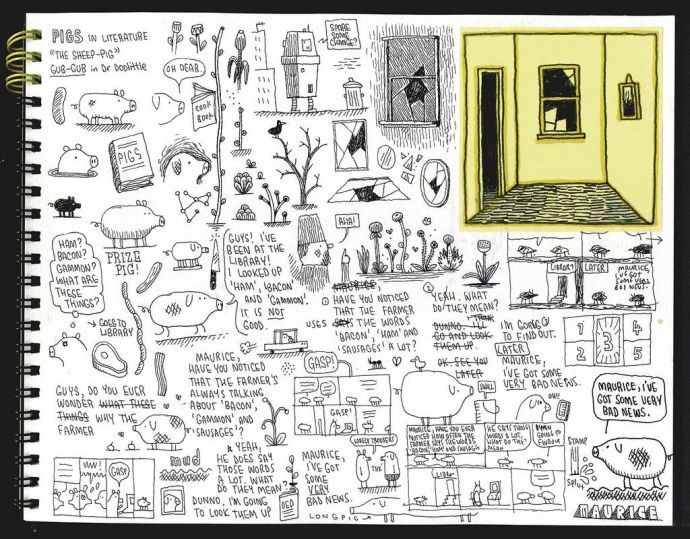 PIGS IN LITERATURE
"THE SHEEP-PIG"
GUB-GUB in Dr Dolittle
OH DEAR.
COOK
BOOK
SPARE
SOME
CHANGE?
PIGS
PRIZE
PIG!
HAM?
BACON?
GAMMON?
WHAT ARE
THESE
THINGS?
GOES TO
LIBRARY
GUYS! I'VE
BEEN AT THE
LIBRARY!
I LOOKED UP
'HAM', 'BACON'
AND 'GAMMON'.
IT IS NOT
GOOD.
AHA!
MAURICE,
HAVE YOU NOTICED
THAT THE FARMER
USES
SAYS THE WORDS
'BACON', 'HAM' AND
'SAUSAGES' A LOT?
YEAH. WHAT
DO THEY MEAN?
DUNNO. I'LL
GO AND LOOK
THEM UP.
OK. SEE YOU
LATER
I'M GOING
TO FIND OUT.
LATER
MAURICE,
I'VE GOT SOME
VERY BAD NEWS.
LIBRARY
LATER
MAURICE,
I'VE GOT
SOME VERY
BAD NEWS!
1 2 3 4 5
GUYS, DO YOU EVER
WONDER WHAT THESE
THINGS WHY THE
FARMER
MAURICE,
HAVE YOU NOTICED
THAT THE FARMER'S
ALWAYS TALKING
ABOUT 'BACON',
'GAMMON' AND
'SAUSAGES'?
YEAH,
HE DOES SAY
THOSE WORDS
A LOT. WHAT
DO THEY MEAN?
DUNNO. I'M GOING
TO LOOK THEM UP
GASP!
GASP!
MAURICE,
I'VE GOT
SOME
VERY
BAD NEWS.
LONGPIG
OED
mud
GASP
SMALL
OH!!
LOWER TROUSERS
THE
MAURICE, HAVE YOU EVER
NOTICED HOW OFTEN THE
FARMER SAYS THE WORDS
'BACON', 'HAM' AND 'SAUSAGE'
HE SAYS THOSE
WORDS A LOT.
WHAT DO THEY
MEAN
LIBRARY
MAURICE, I'VE
GOT SOME VERY
BAD NEWS.
STAMP
Splat
MAURICE